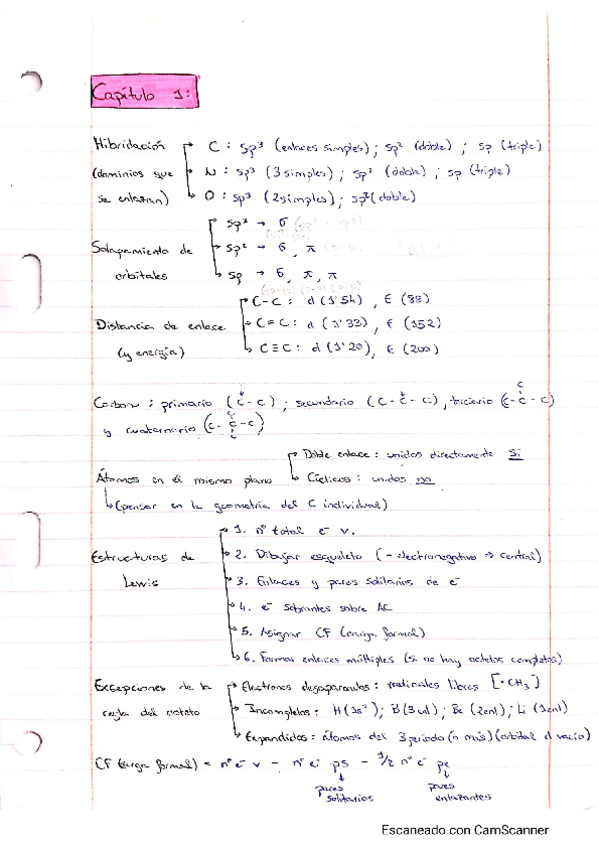 Capítulo 1:
Hibridación → C : sp³ (enlaces simples) ; sp² (doble) ; sp (triple)
(dominios que → N : sp³ (3 simples) ; sp² (doble) ; sp (triple)
se enlazan) → O : sp³ (2 simples) ; sp² (doble)
sp³ → σ
Solapamiento de → sp² → σ, π
orbitales → sp → σ, π, π
C-C : d (1'54), E (88)
Distancia de enlace → C=C : d (1'33), E (152)
(y energía) → C≡C : d (1'20), E (200)
Carbono : primario (C-C) ; secundario (C-C-C), terciario (C-C-C)
y cuaternario (C-C-C)
Doble enlace : unidos directamente Si
Átomos en el mismo plano → Cíclicos : unidos no
(pensar en la geometría del C individual)
1. nº total e⁻ v.
Estructuras de → 2. Dibujar esqueleto (- electronegativo ⇒ central)
Lewis → 3. Enlaces y pares solitarios de e⁻
4. e⁻ sobrantes sobre AC
5. Asignar CF (carga formal)
6. Formar enlaces múltiples (si no hay octetos completos)
Excepciones de la → Electrones desapareados : radicales libres [·CH₃]
regla del octeto → Incompletos : H (1s²) ; B (3enl) ; Be (2enl) ; Li (1enl)
Expandidos : átomos del 3 periodo (o más) (orbital d vacío)
CF (carga formal) = nº e⁻ v - nº e⁻ ps - 1/2 nº e⁻ pe
pares solitarios
pares enlazantes
Escaneado con CamScanner